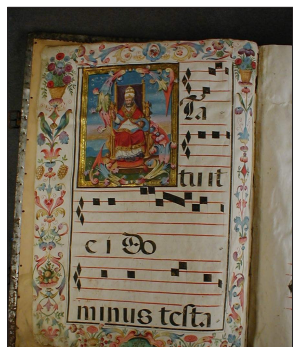 Sta
tuit
e i Do
minus testa